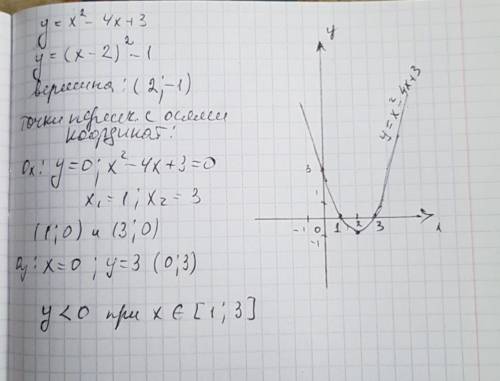 y = x² - 4x + 3
y = (x - 2)² - 1
вершина: (2; -1)
точки перес. с осями
координат:
Ox: y = 0; x² - 4x + 3 = 0
x₁ = 1; x₂ = 3
(1; 0) и (3; 0)
Oy: x = 0; y = 3 (0; 3)
y < 0 при x ∈ [1; 3]
y
y = x² - 4x + 3
3
1
-1 0 1 2 3
-1